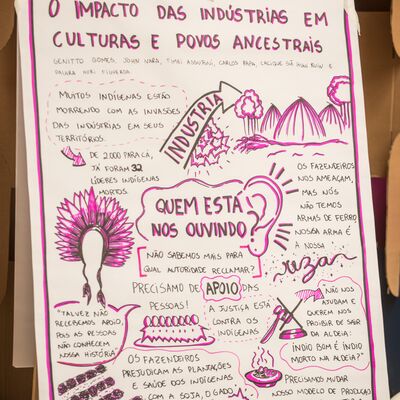 O IMPACTO DAS INDÚSTRIAS EM
CULTURAS E POVOS ANCESTRAIS
GENITTO GOMES, JOHN NARA, TIMEI ASSURINI, CARLOS PAPA, CACIQUE SIÃ HUNI KUIN E
DAIARA HORI FIGUEROA
MUITOS INDÍGENAS ESTÃO
MORRENDO COM AS INVASÕES
DAS INDÚSTRIAS EM SEUS
TERRITÓRIOS.
INDÚSTRIA
DE 2.000 PARA CÁ,
JÁ FORAM 32
LÍDERES INDÍGENAS
MORTOS.
QUEM ESTÁ
NOS OUVINDO?
OS FAZENDEIROS
NOS AMEAÇAM,
MAS NÓS
NÃO TEMOS
ARMAS DE FERRO,
NOSSA ARMA É
A NOSSA
REZA
NÃO SABEMOS MAIS PARA
QUAL AUTORIDADE RECLAMAR?
PRECISAMO DE APOIO DAS
PESSOAS!
"TALVEZ NÃO
RECEBEMOS APOIO,
POIS AS PESSOAS
NÃO CONHECEM
NOSSA HISTÓRIA"
A JUSTIÇA ESTÁ
CONTRA OS
INDÍGENAS
NÃO NOS
AJUDAM E
QUEREM NOS
PROIBIR DE SAIR
DA ALDEIA:
ÍNDIO BOM É ÍNDIO
MORTO NA ALDEIA?"
OS FAZENDEIROS
PREJUDICAM AS PLANTAÇÕES
E SAÚDE DOS INDÍGENAS
COM A SOJA, O GADO
PRECISAMOS MUDAR
NOSSO MODELO DE PRODUÇÃO